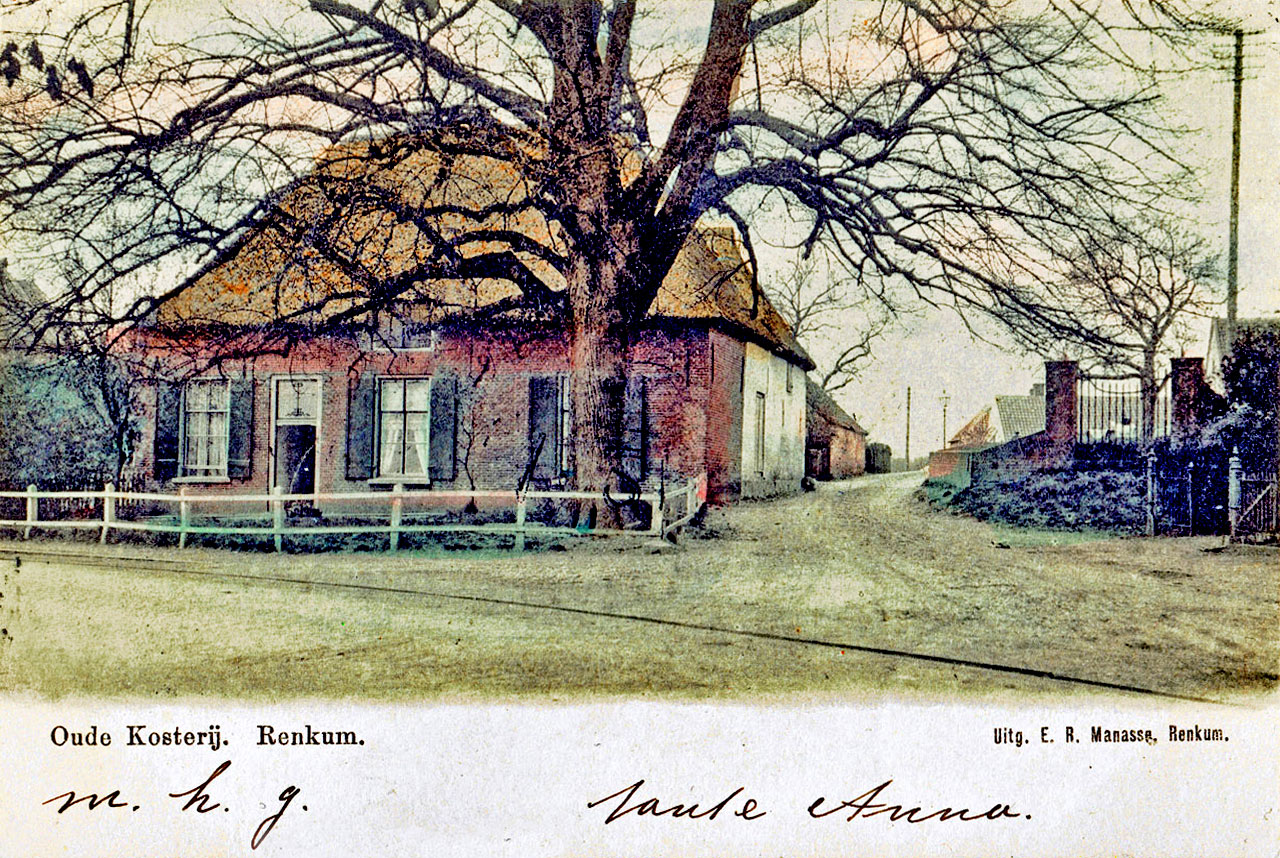 Oude Kosterij. Renkum.
Uitg. E. R. Manasse, Renkum.
m. h. g. tante Anna.